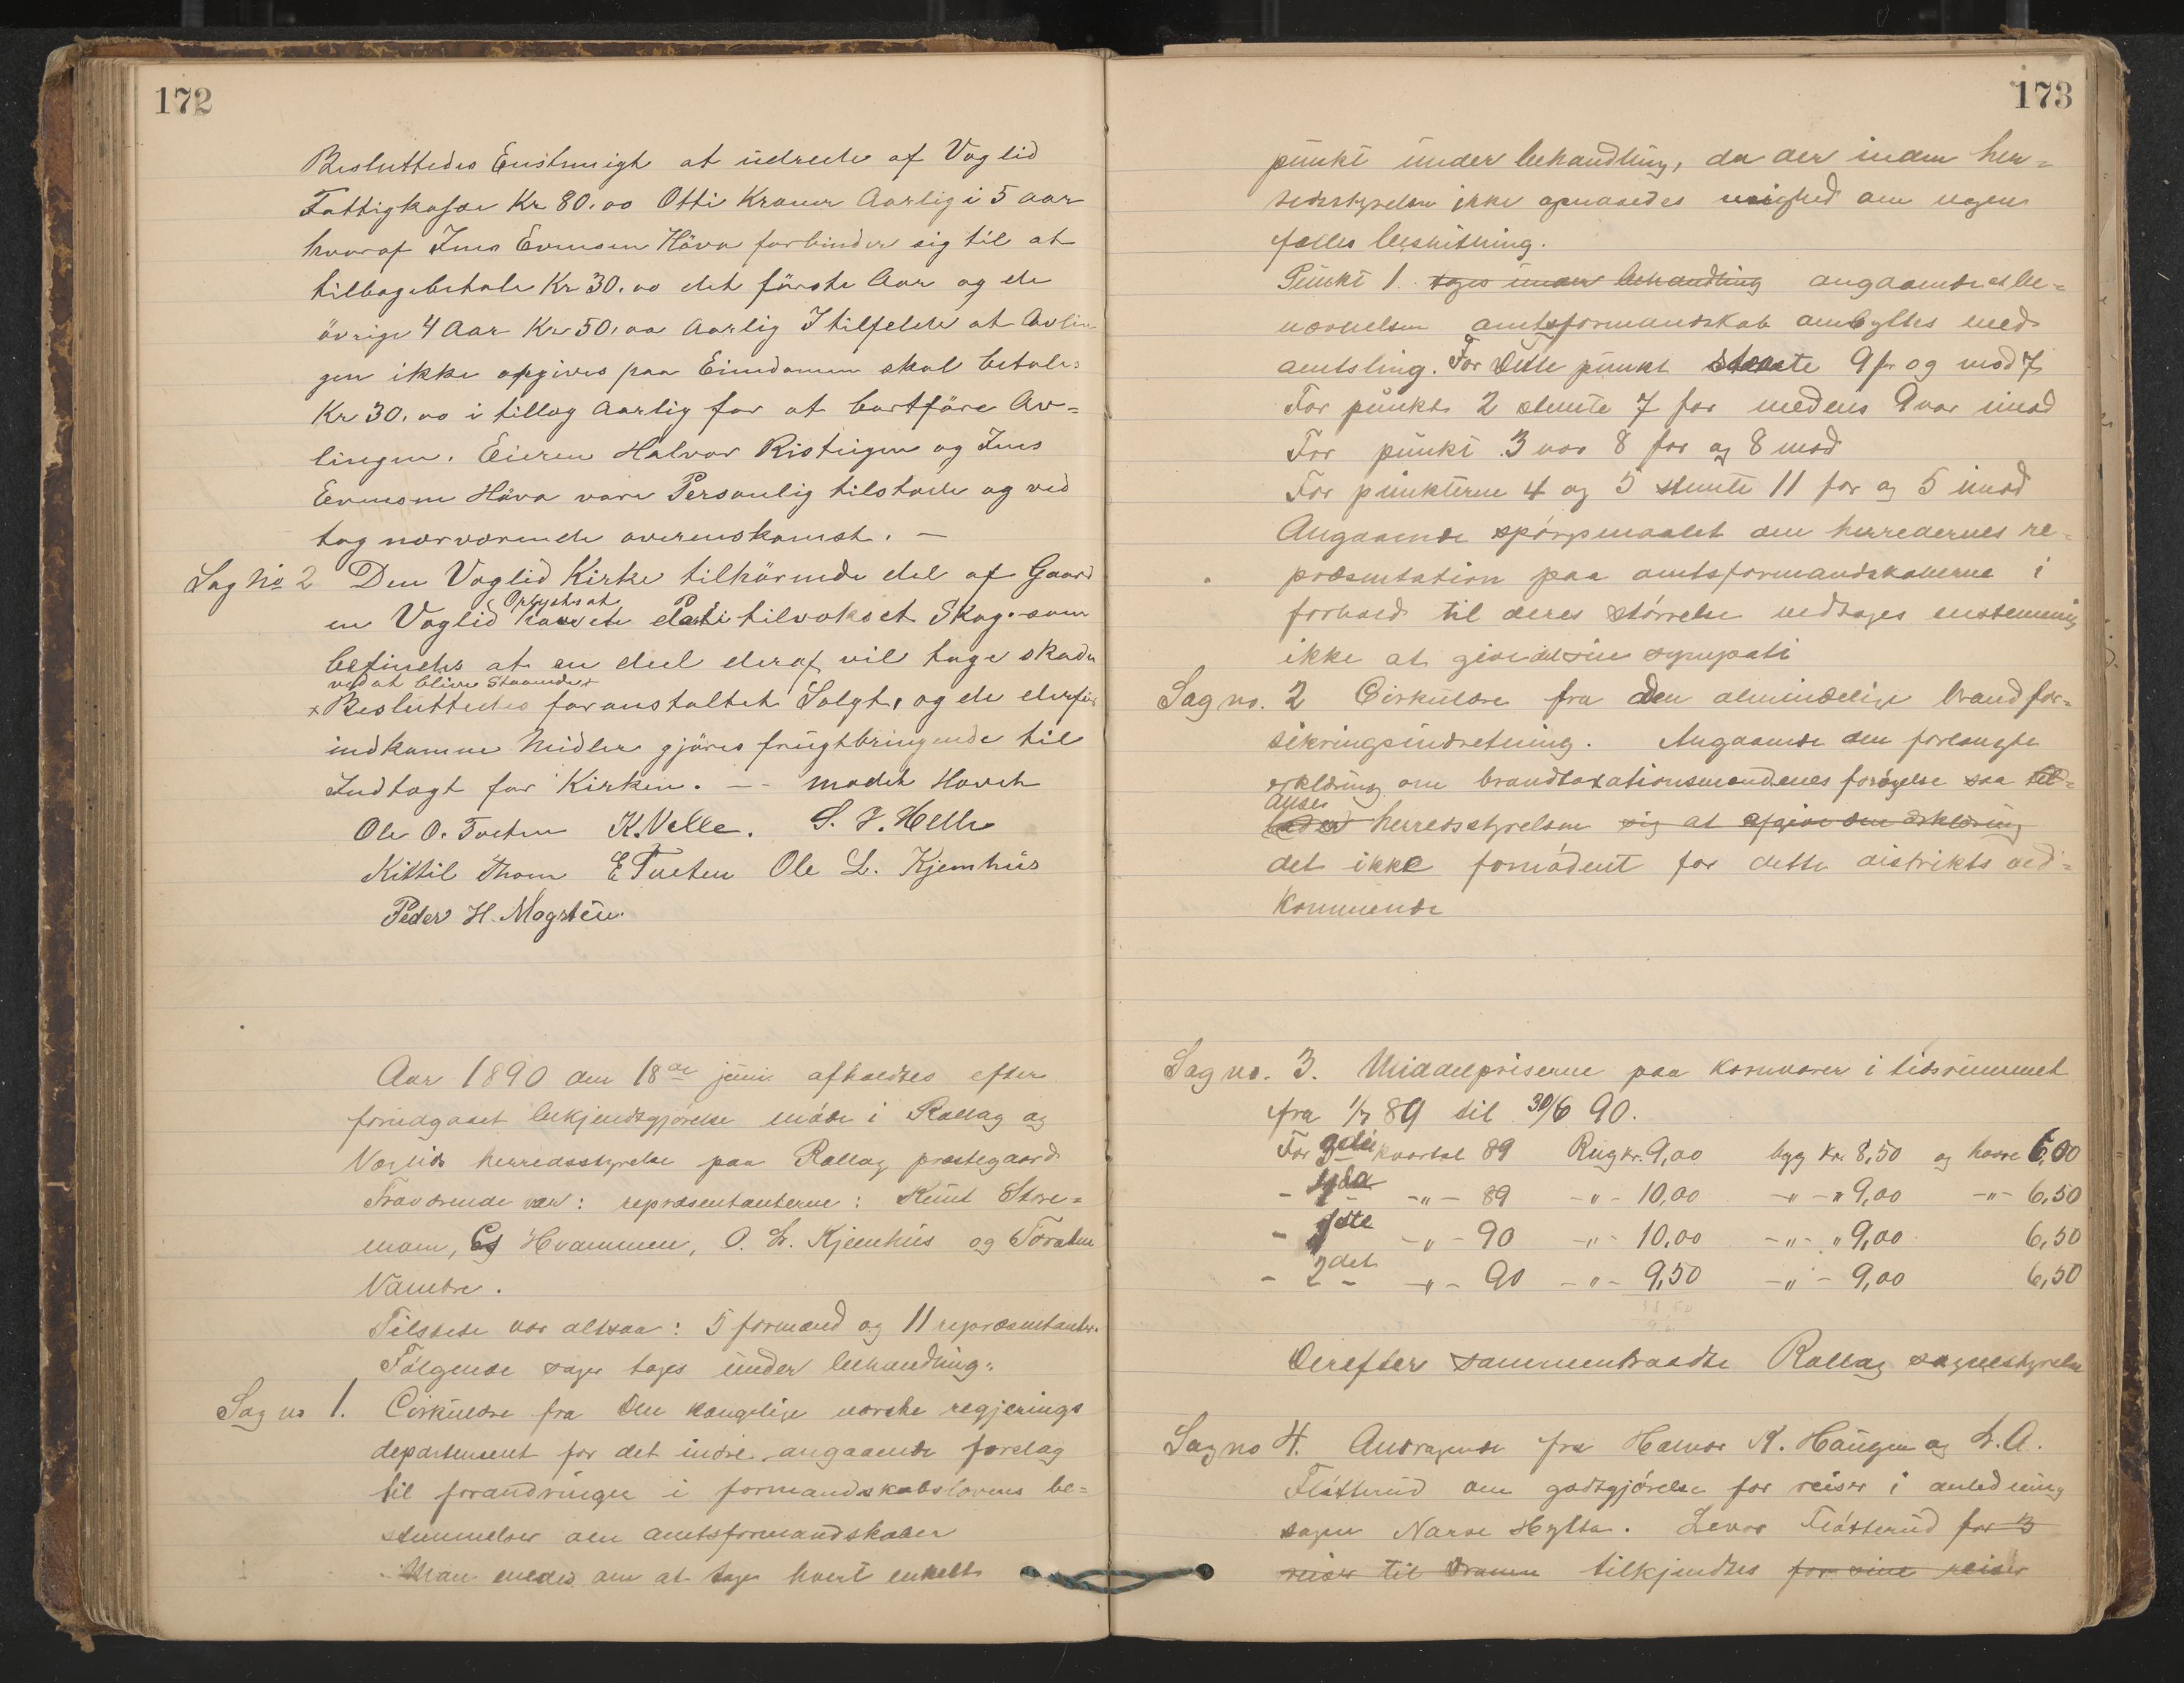 172
Besluttedes Enstemigt at üdrede af Voglid
Fattigkasse Kr 80.00 Otti Kroner Aarlig i 5 aar
hvoraf Jens Evensen Höva forbinder sig til at
tilbagebetale Kr 30.00 det förste Aar og de
övrige 4 Aar Kr 50.00 Aarlig I tilfelde at Avlin
gen ikke opgives paa Eiendomen skal betales
Kr 30.00 i tillæg Aarlig for at bortföre Av=
lingen. Eieren Halvor Risteigen og Jens
Evensen Höva vare Personlig tilstede og ved
tog nærværende overenskomst. —
Sag No 2 Den Voglid Kirke tilhörende del af Gaard
Oplystes at
en Voglid havde et Parti tilvokset Skog. som
befindes at en deel deraf vil tage skade
ved at blive Staaende x
x Besluttedes foranstaltet Solgt, og de derfor
indkomne Midler gjöres frügtbringende til
Indtægt for Kirken. — - mödet Hævet
Ole O. Toeten K. Velle. S. J. Helle
Kittil Thom E Traaen Ole L. Kjemhüs
Peder H. Mogstèü.
Aar 1890 den 18de jüni afholdtes efter
foregaaet bekjendtgjørelse møde i Rollag og
Væglids herredsstyrelse paa Rollag præstegaard
Fraværende var: repræsentanterne: Knüt Store=
moen, Hvammen, O. L. Kjemhüs og Toralm
Vandre.
Tilstede var altsaa: 5 formænd og 11 repræsentanter.
Følgende sager toges ünder behandling:
Sag no 1. Cirkülære fra Den kongelige norske regjerings
departement for det indre angaaende forslag
til forandringer i formandskabslovens be=
stemmelser om amtsformandskaber
Man enedes om at tage hvert enkelt
173
pünkt ünder behandling, da der inden her=
redsstyrelsen ikke opnaaedes enighed om nogen
fælles beslutning.
Pünkt 1. toges ünder behandling angaaende at be=
nævnelsen amtsformandskab ombyttes med
amtsting. For Dette pünkt stemte 9 for og mod 7
For pünkt 2 stemte 7 for medens 9 var imod
For pünkt 3 var 8 for og 8 mod
For pünkterne 4 og 5 stemte 11 for og 5 imod
Angaaende spørgsmaalet om herredernes re=
præsentation paa amtsformandskaberne i
forhold til deres størrelse vedtages enstemmig
ikke at give det sin sympati
Sag no. 2 Cirkülære fra den almindelige brandfor=
sikringsindretning. Angaaende den forlangte
erklæring om brandtaxationsmændenes forøgelse saa
anser
herredsstyrelsen sig at afgive den erklæring
det ikke fornødent for dette distrikts ved=
kommende
Sag no. 3. Middelpriserne paa kornvarer i tidsrümmet
fra 1/7 89 til 30/6 90.
For 3die kvartal 89 Rug kr. 9,00 byg kr. 8,50 og havre 6,00
- 4de -"- 89 -"- 10,00 -"- " 9,00 -"- 6,50
- 1ste -"- 90 -"- 10,00 -"- " 9,00 6,50
- 2det -"- 90 -"- 9,50 -"- 9,00 6,50
Derefter sammentraadte Rollag sognestyrelse
Sag no 4. Andragende fra Halvor K. Haügen og L. A.
Fløtterüd om godtgjørelse for reiser i anledning
sagen Narve Hylta. Levor Fløtterüd for 3
reiser til Drammen tilkjendtes for sine reiser